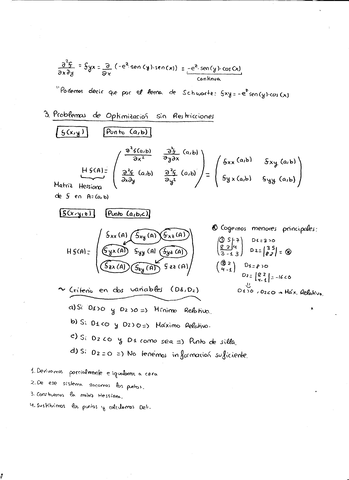 ∂²f/∂x∂y = fyx = ∂/∂x (-eˣ·sen(y)·sen(x)) = -eˣ·sen(y)·cos(x)
continua
"Podemos decir que por el tema de Schwartz: fxy = -eˣ sen(y)·cos(x)
3. Problemas de Optimización Sin Restricciones
f(x,y) Punto (a,b)
Hf(A) = ( ∂²f(a,b)/∂x² ∂²f/∂y∂x (a,b) ) = ( fxx (a,b) fxy (a,b) )
( ∂²f/∂x∂y (a,b) ∂²f/∂y² (a,b) ) ( fyx (a,b) fyy (a,b) )
Matriz Hessiana
de f en A=(a,b)
f(x,y,z) Punto (a,b,c)
Hf(A) = ( fxx (A) fxy (A) fxz (A) )
( fyx (A) fyy (A) fyz (A) )
( fzx (A) fzy (A) fzz (A) )
Cogemos menores principales:
D1=2>0
D2=
D1=
D2= = -16<0
D1>0 D2<0 → Máx. Relativo.
~ Criterio en dos variables (D1,D2)
a) Si D1>0 y D2>0 => Mínimo Relativo.
b) Si D1<0 y D2>0 => Máximo Relativo.
c) Si D2<0 y D1 como sea => Punto de silla.
d) Si D2=0 => No tenemos información suficiente.
1. Derivamos parcialmente e igualamos a cero.
2. De ese sistema sacamos los puntos.
3. Construimos la matriz Hessiana.
4. Sustituimos los puntos y calculamos Det.